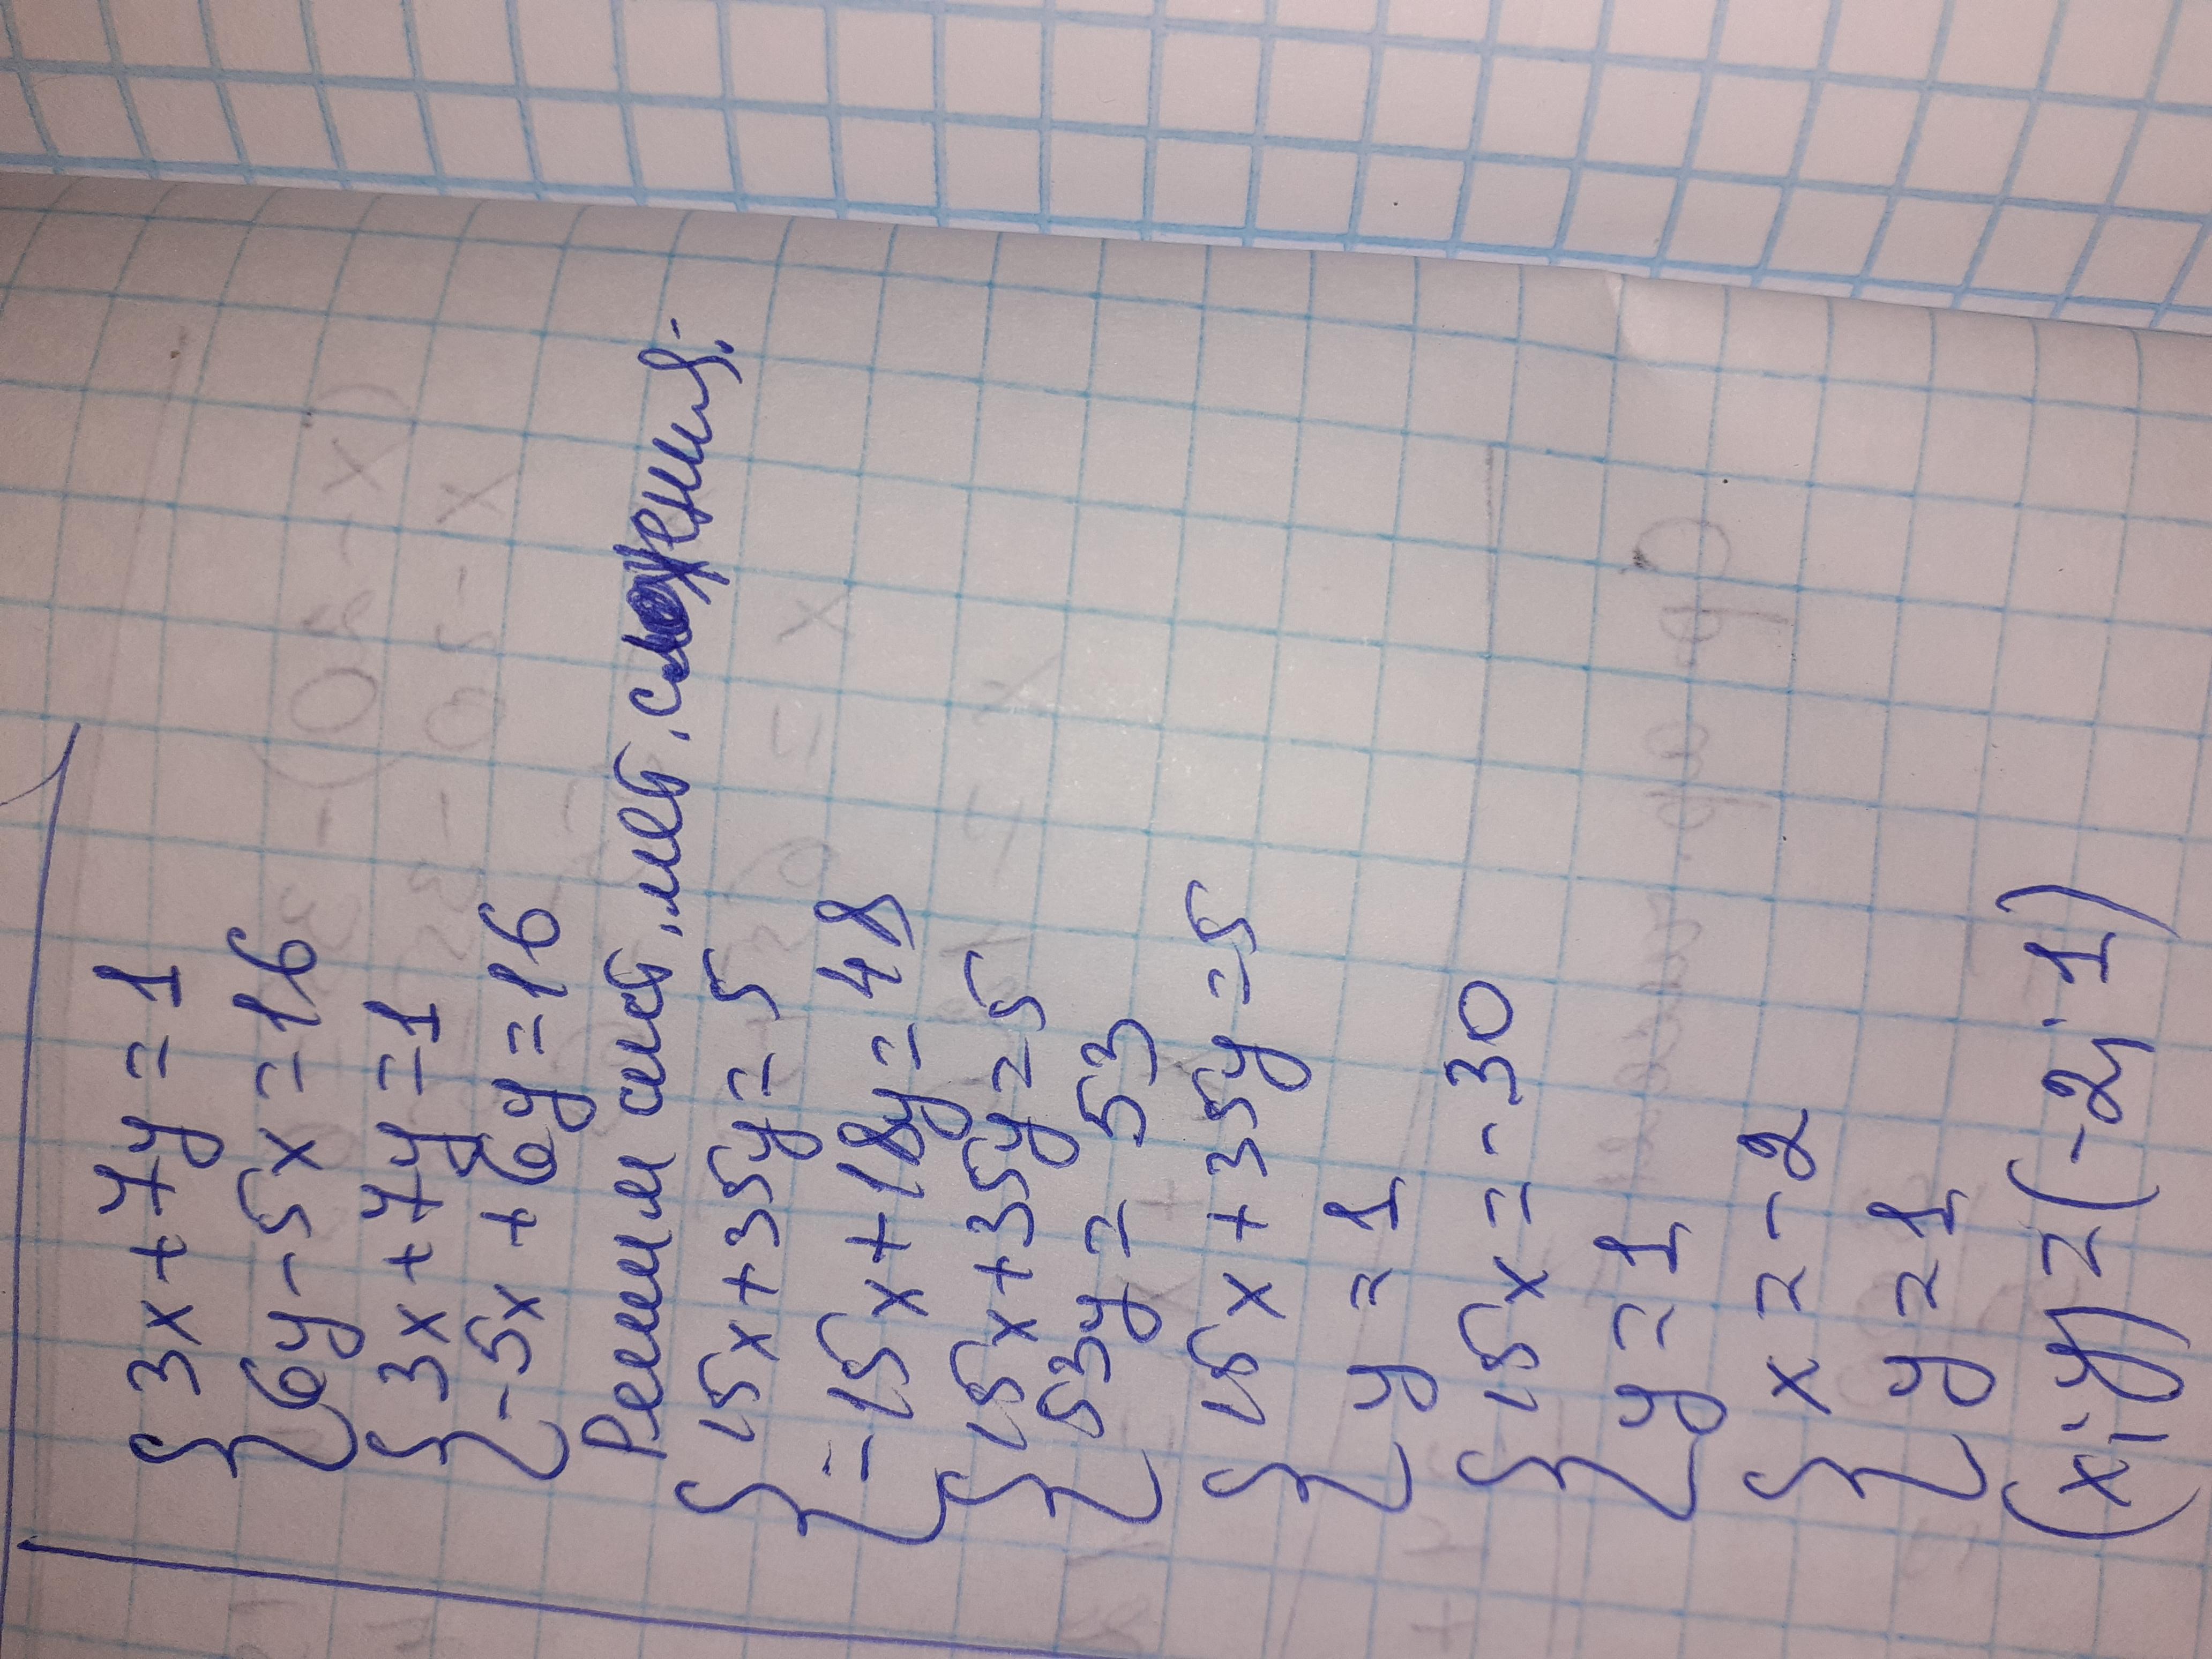 {3x+7y=1
{6y-5x=16
{3x+7y=1
{-5x+6y=16
Решим сист. мет. сложения:
{15x+35y=5
{=15x+18y=48
{15x+35y=5
{53y=53
{15x+35y=5
{y=1
{15x=-30
{y=1
{x=-2
{y=1
(x;y)=(-2;1)